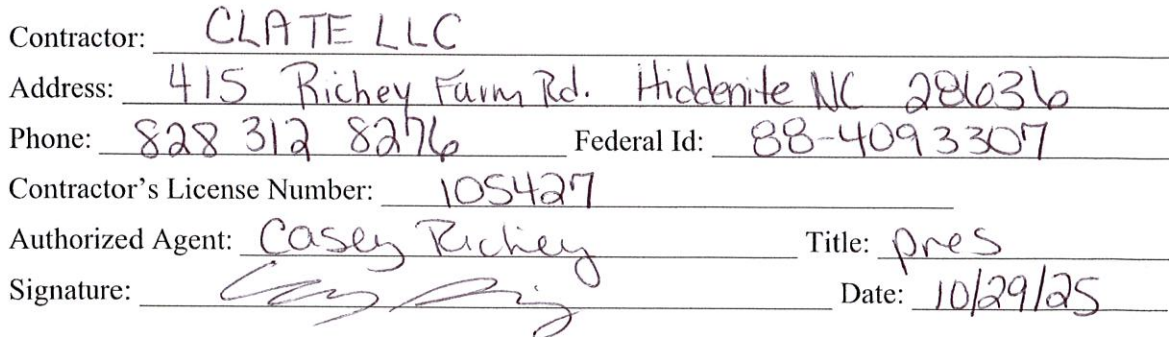 Contractor: CLATE LLC
Address: 415 Richey Farm Rd. Hiddenite NC 28636
Phone: 828 312 8276 Federal Id: 88-4093307
Contractor's License Number: 105427
Authorized Agent: Casey Richey Title: pres
Signature:
Date: 10/29/25